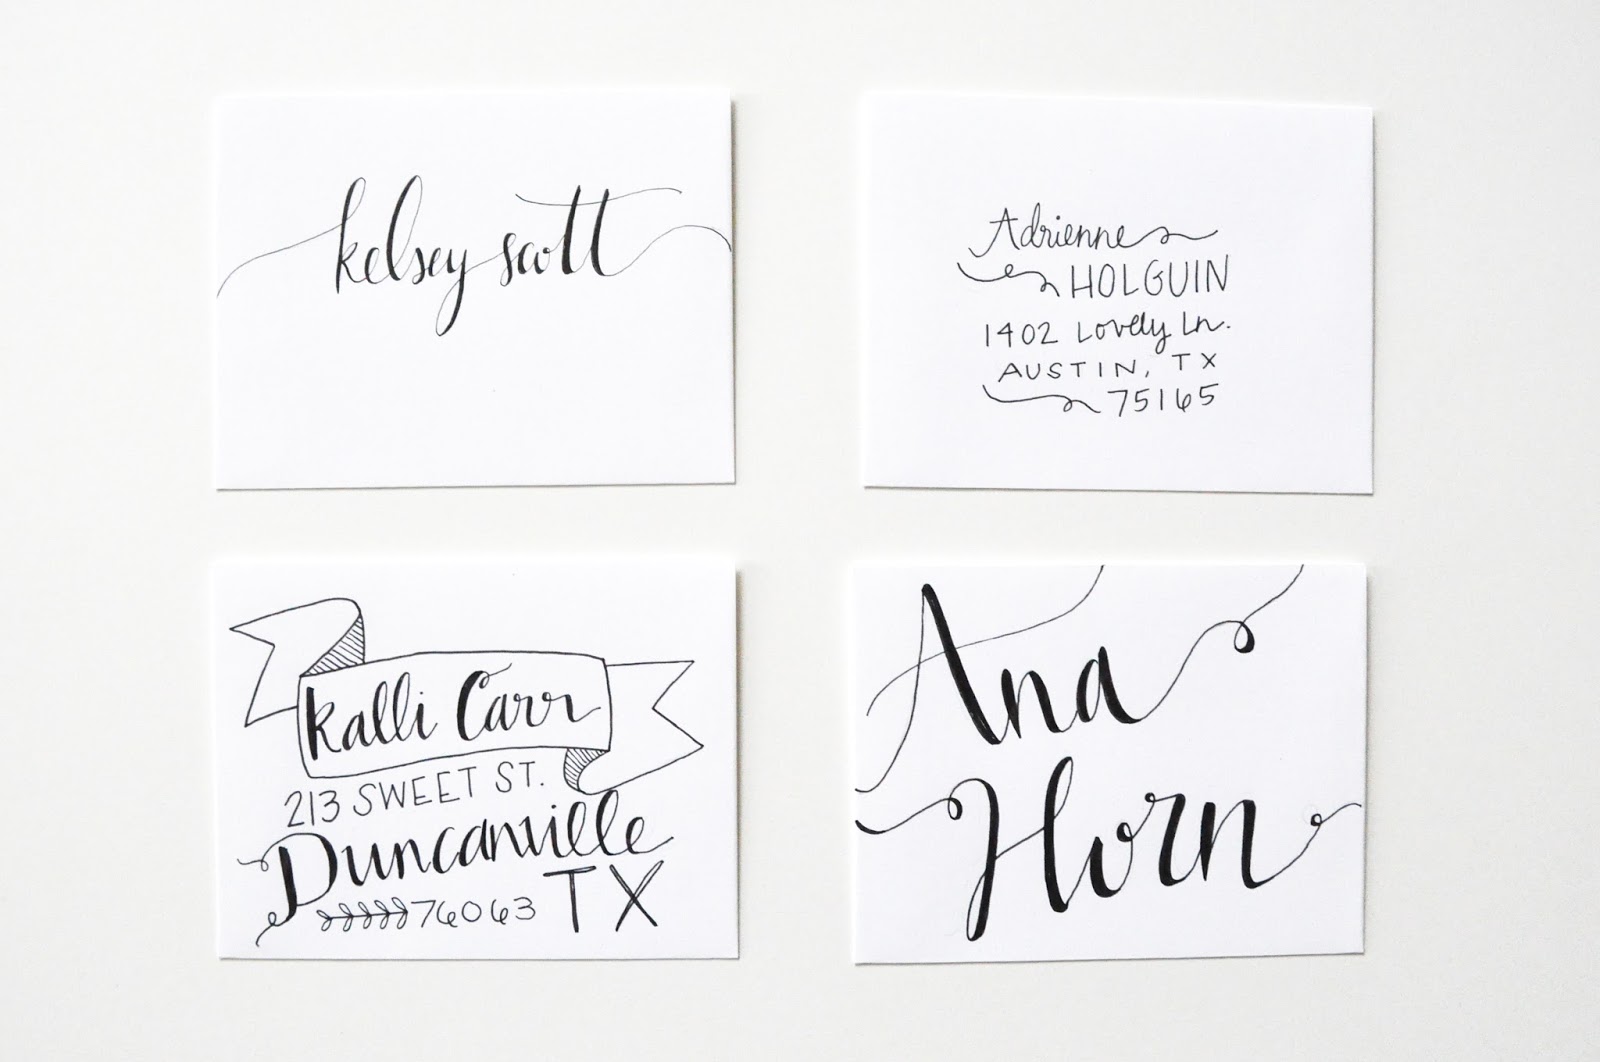 kelsey scott
Adrienne
HOLGUIN
1402 Lovely Ln.
AUSTIN, TX
75165
Kalli Carr
213 SWEET ST.
Duncanville
TX
76063
Ana
Horn